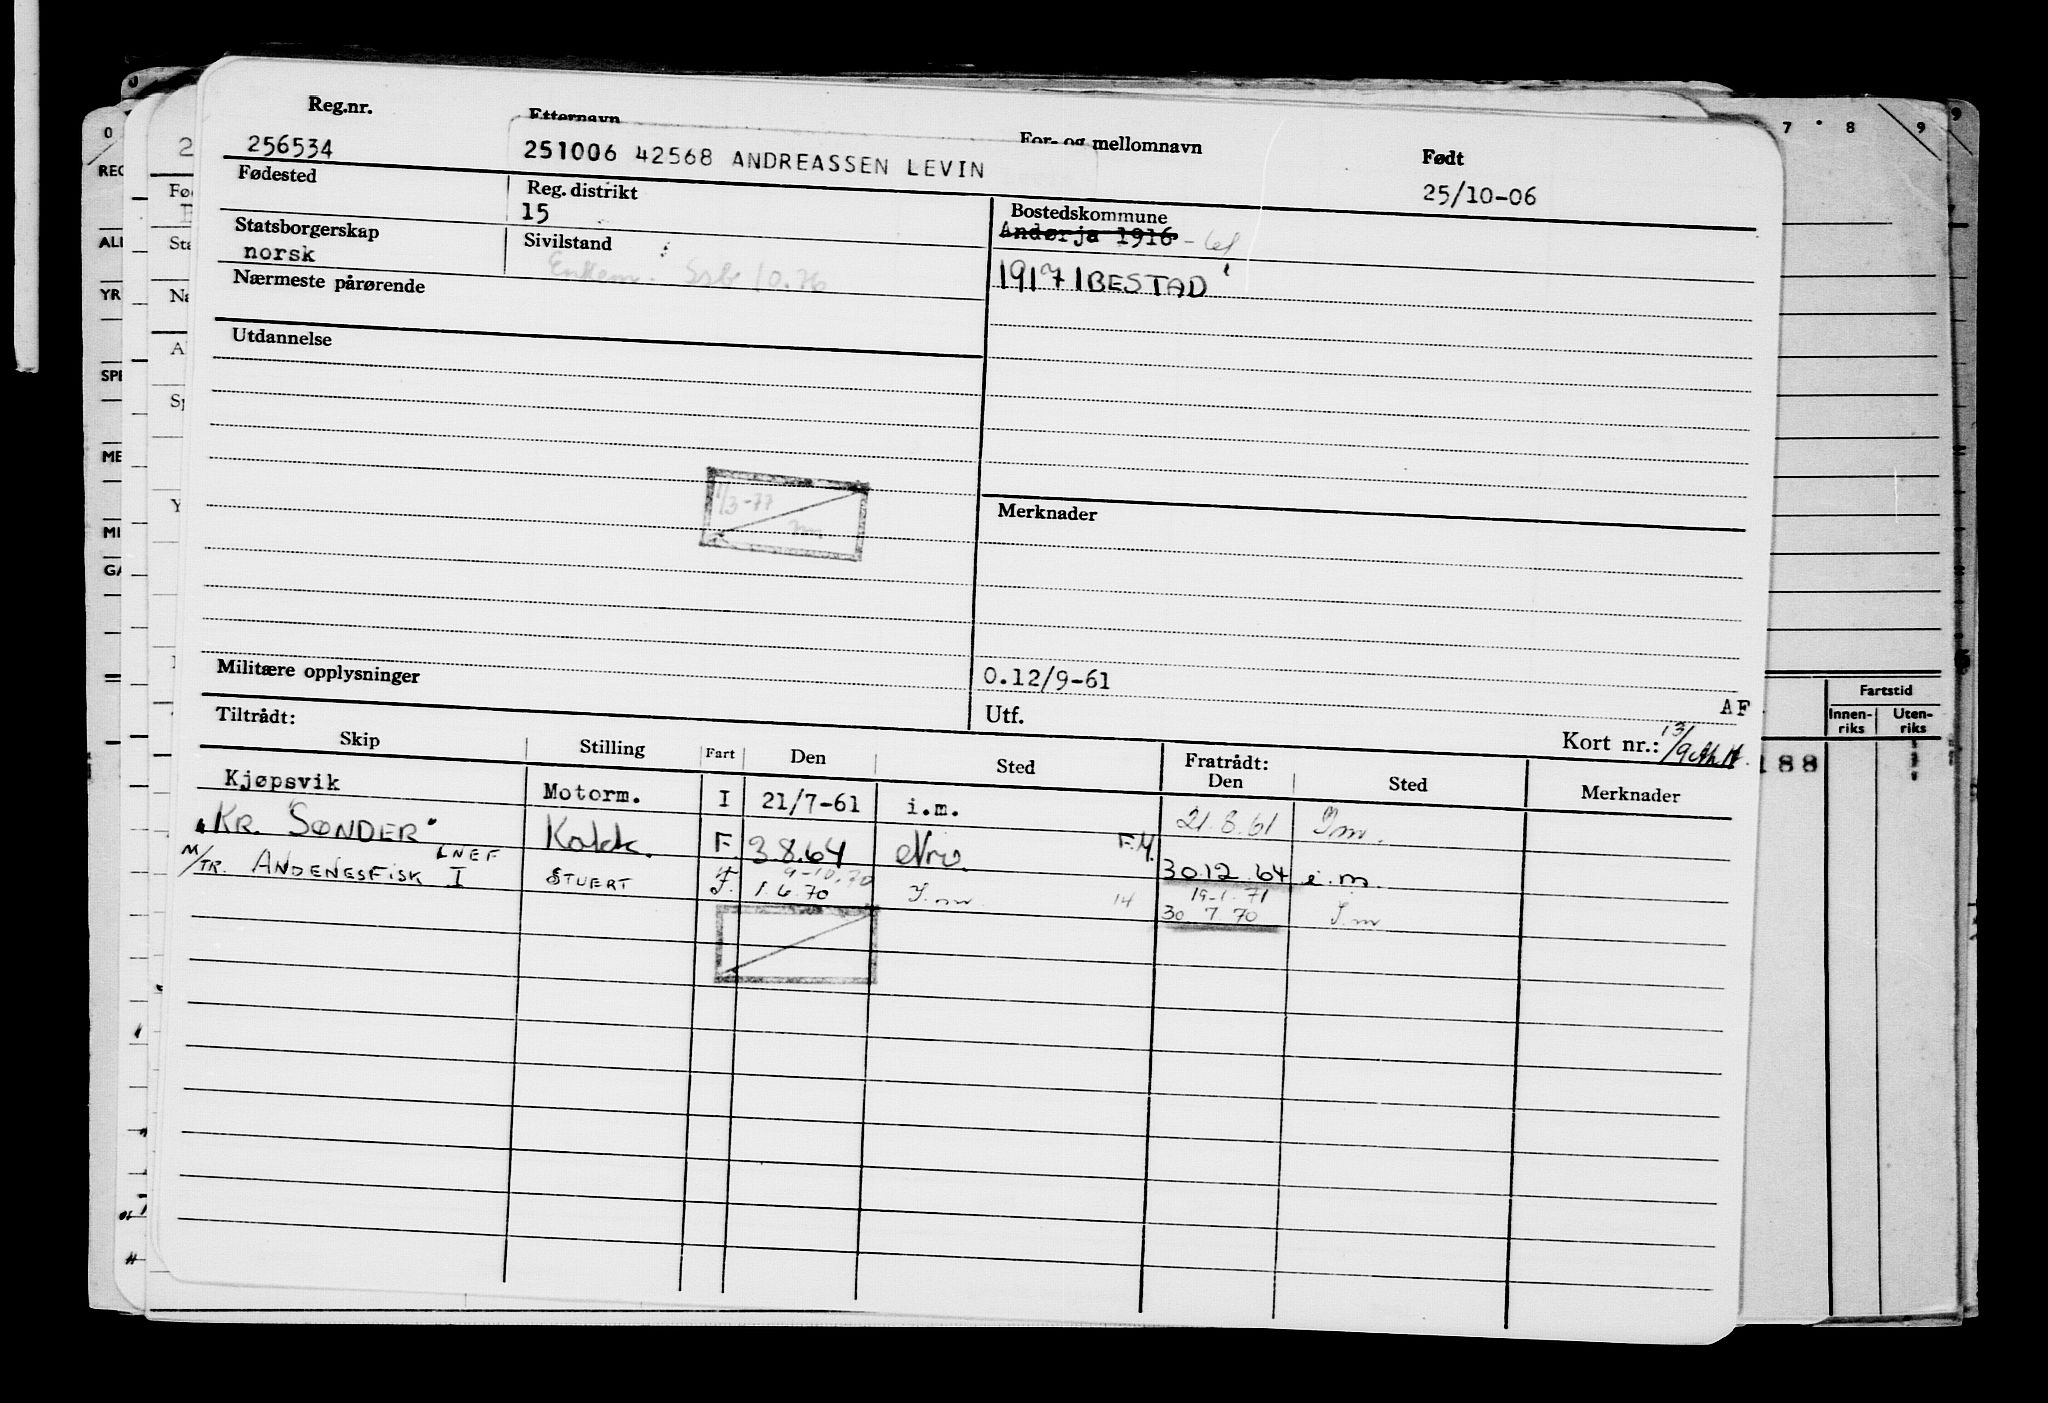 Reg.nr. Etternavn For- og mellomnavn Født
256534 251006 42568 ANDREASSEN LEVIN 25/10-06
Fødested Reg. distrikt Bostedskommune
15 Andørja 1916 - 64
Statsborgerskap Sivilstand
norsk Enkem. Ssb 10.76 1917 IBESTAD
Nærmeste pårørende
Utdannelse
1/3-77
Merknader
Militære opplysninger 0.12/9-61
AF
Tiltrådt: Utf. Kort nr.: 13/9
Skip Stilling Fart Den Sted Fratrådt: Den Sted Merknader
Kjøpsvik Motorm. I 21/7-61 i.m. 21.8.61 I m.
"KR. SØNDER" LNEF Kokk. F. 3.8.64 Nrv. F.M. 30.12.64 i.m.
9-10.70 19-1.71
M/TR. ANDENESFISK I STUERT F. 1.6.70 I.m. 14 30.7.70 I.m
0 7 8 9
REG
ALL
YR
SPE
ME
MI
GA
Fø
Sta
Na
Sp
Fartstid
Innen-riks Uten-riks
188